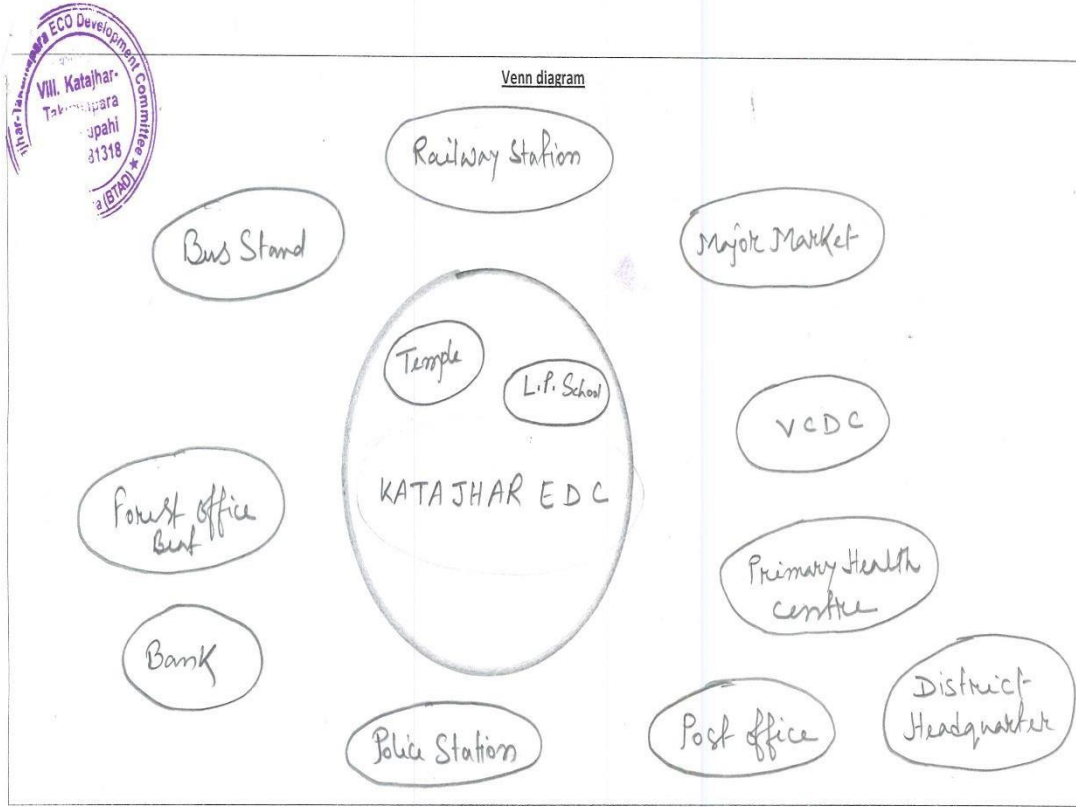 ECO Development Committee ★
Vill. Katajhar-
31318
(BTAD)
Venn diagram
Railway Station
Bus Stand
Major Market
Temple
L.P. School
VCDC
KATAJHAR EDC
Forest office
Beat
Primary Health
centre
Bank
District
Headquarter
Police Station
Post office